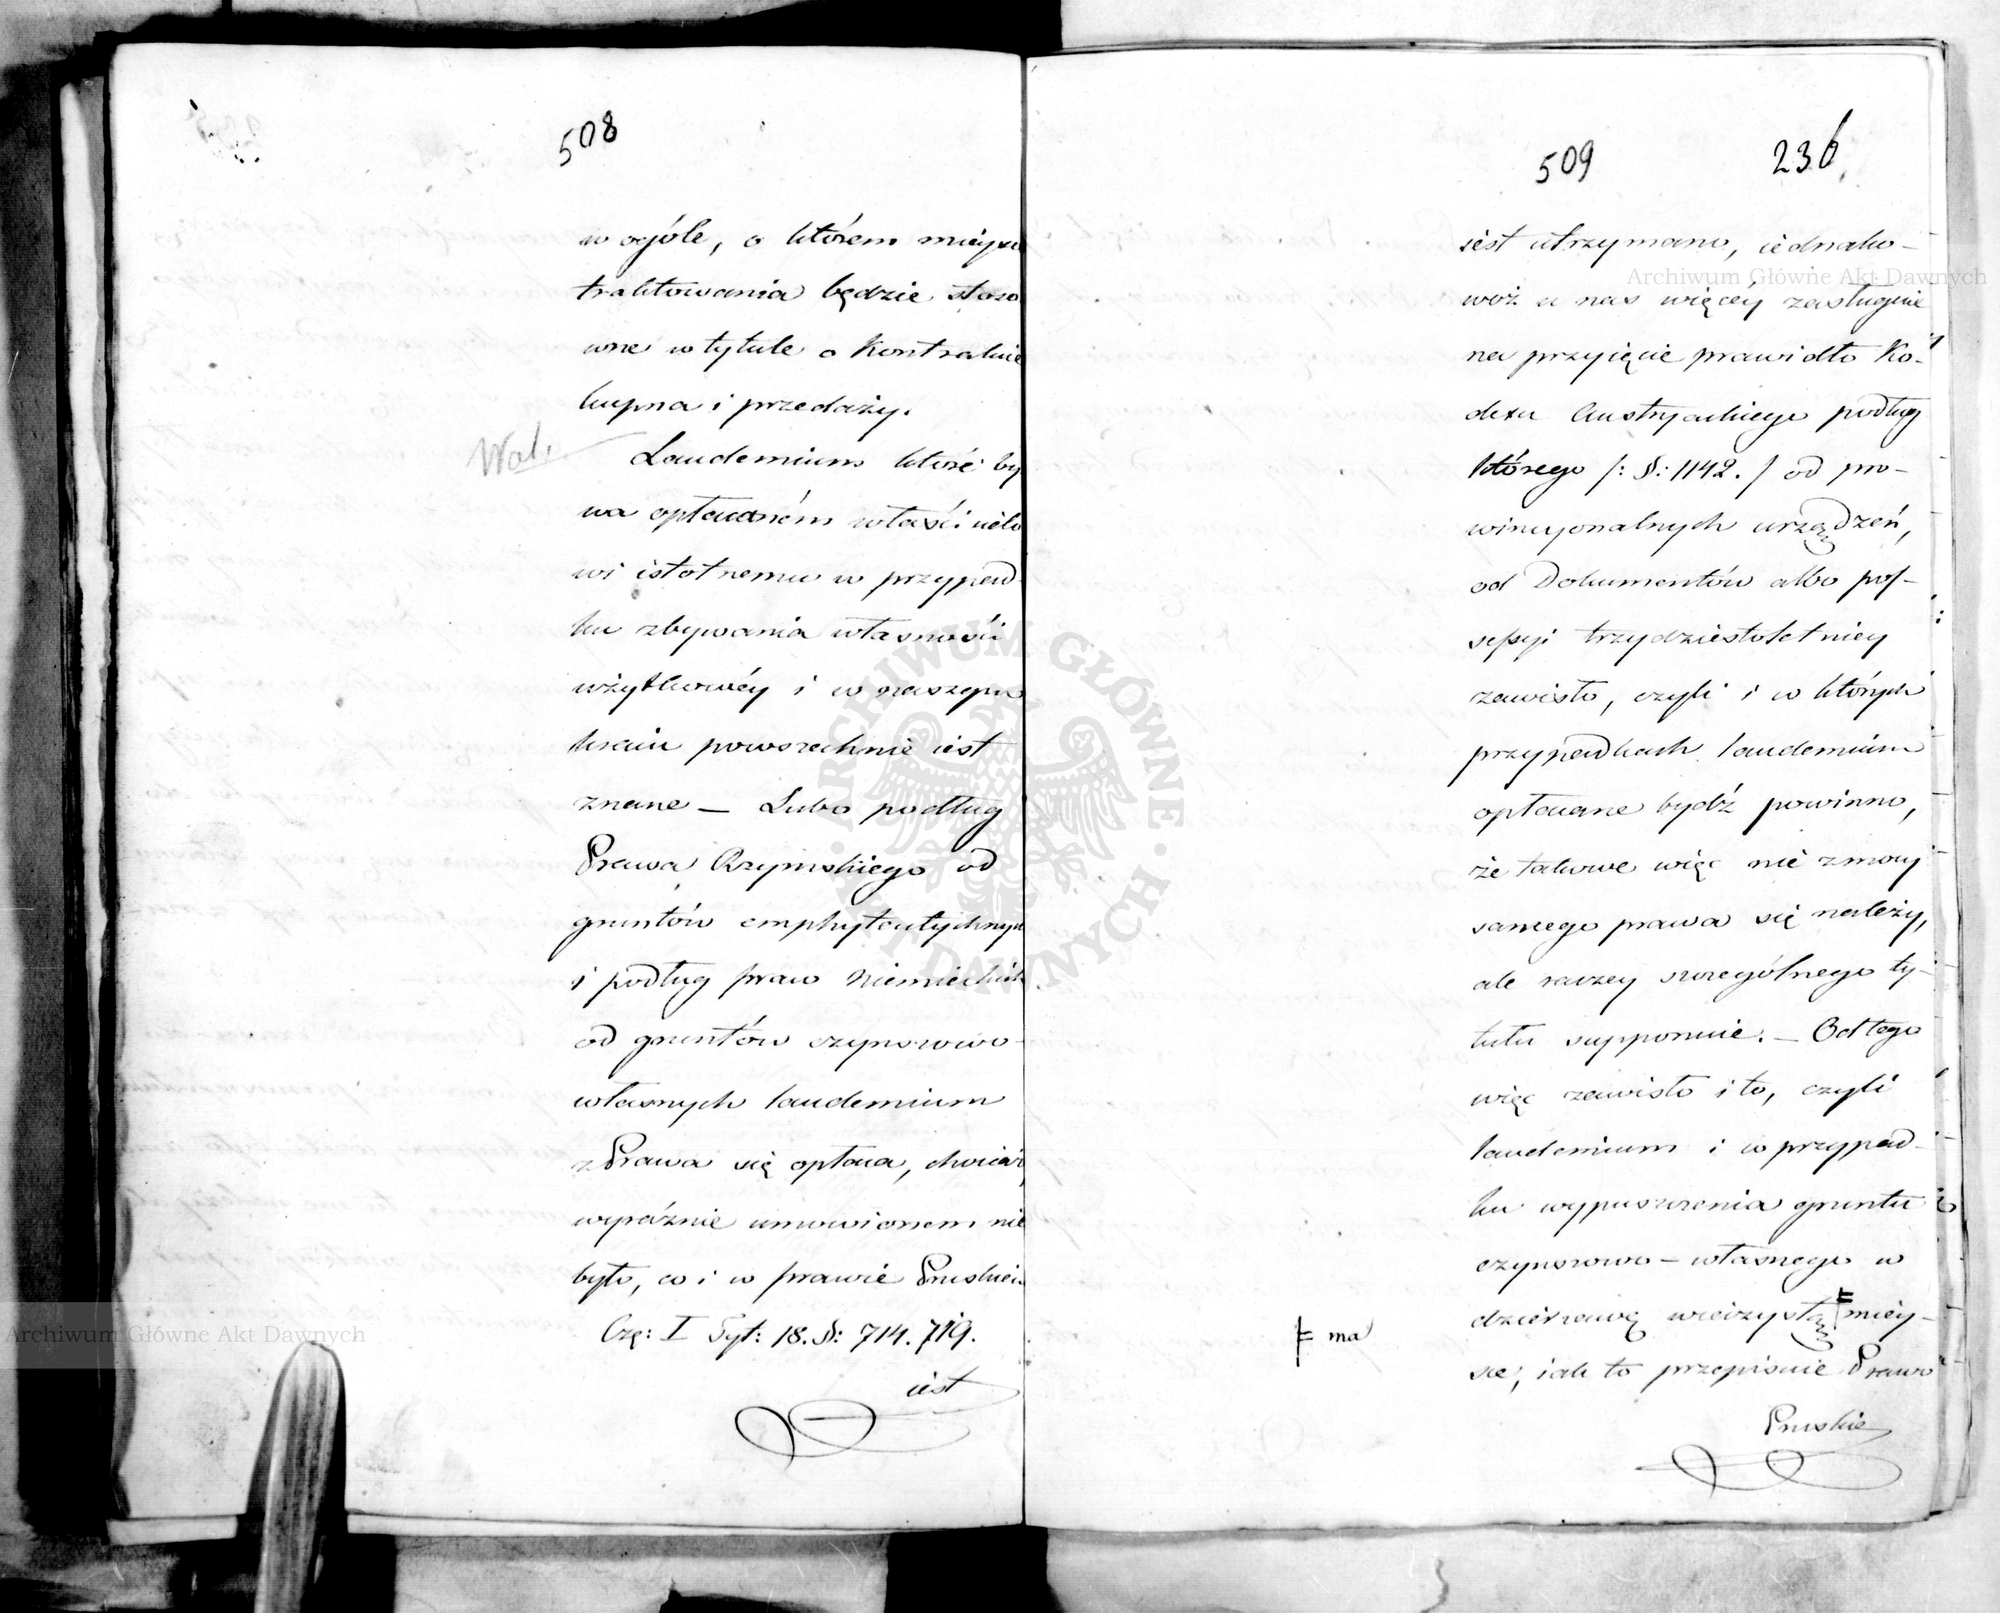 508
w ogóle, o którem mieysce
traktowania będzie stoso
wne w tytule o Kontrakcie
kupna i przedaży.
Wol.
Laudemium które by
wa opłacaném właścicielo
wi istotnemu w przypad-
ku zbywania własności
użytkowéy i w naszym
kraiu powszechnie iest
znane — Lubo podług
Prawa Rzymskiego od
gruntów emphyteutycznych
i podług praw Niemieckich
od gruntów czynszowo-
własnych laudemium
z Prawa się opłaca, chociaż
wyráźnie umowionem nie
było, co i w prawie Pruskiem
Czę: I Tyt: 18. §: 714. 719.
iest
509 236
iest utrzymano, iednako-
woż u nas więcéy zasługuie
na przyięcie prawidło Ko-
dexu Austryackiego podług
którego /: §: 1142. / od pro-
wincyonalnych urządzeń,
od Dokumentów albo pos-
sessyi trzydziestoletniey
zawisło, czyli i w których
przypadkach laudemium
opłacane bydź powinno,
że takowe więc nie z mocy
samego prawa się należy,
ale raczey szczególnego ty-
tułu supponuie. — Od tego
więc zawisło i to, czyli
laudemium i w przypad-
ku wypuszczenia gruntu
czynszowo-własnego w
dzierzawę wieczystą ⱡ miey-
ⱡ ma
sce, iak to przepisuie Prawo
Pruskie
Archiwum Główne Akt Dawnych
Archiwum Główne Akt Dawnych
ARCHIWUM GŁÓWNE AKT DAWNYCH